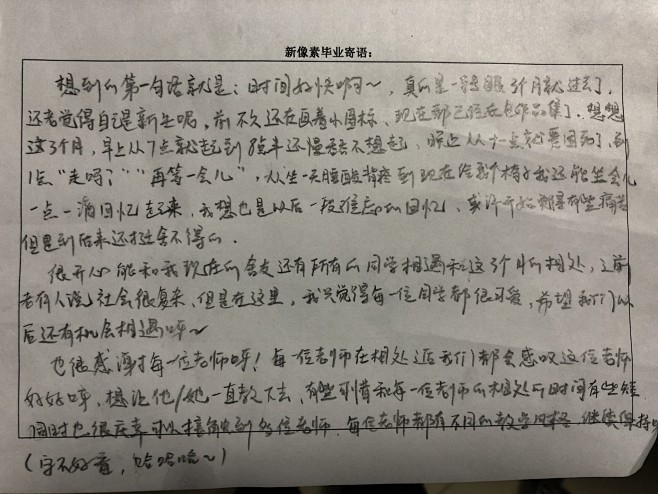 新像素毕业寄语：
想到的第一句话就是：时间好快啊～，真的是一眨眼3个月就过去了，
还老觉得自己是新生呢，前不久还在画着小图标，现在都已经在包作品集了，想想
这3个月，早上从7点就起到 还慢悠悠不想起，晚上从十一点就要困到了，到
1点“走吗？”“再等一会儿”，从坐一天腰酸背疼到现在给我个椅子我还能坐会儿
一点一滴回忆起来，我想也是以后一段难忘的回忆，或许开始都是有些痛苦
但是到后来还挺舍不得的。
很开心能和我现在的舍友还有所有的同学相遇和这3个月的相处，之前
老有人说社会很复杂，但是在这里，我只觉得每一位同学都很可爱，希望我们以
后还有机会相遇呀～
也很感谢每一位老师呀！每一位老师在相处过后我们都会感叹这位老师
好好呀，想让他/她一直教下去，有些可惜和每一位老师的相处的时间有些短
同时也很庆幸可以接触到多位老师，每位老师都有不同的教学风格，继续保持
（字不好看，哈哈哈～）